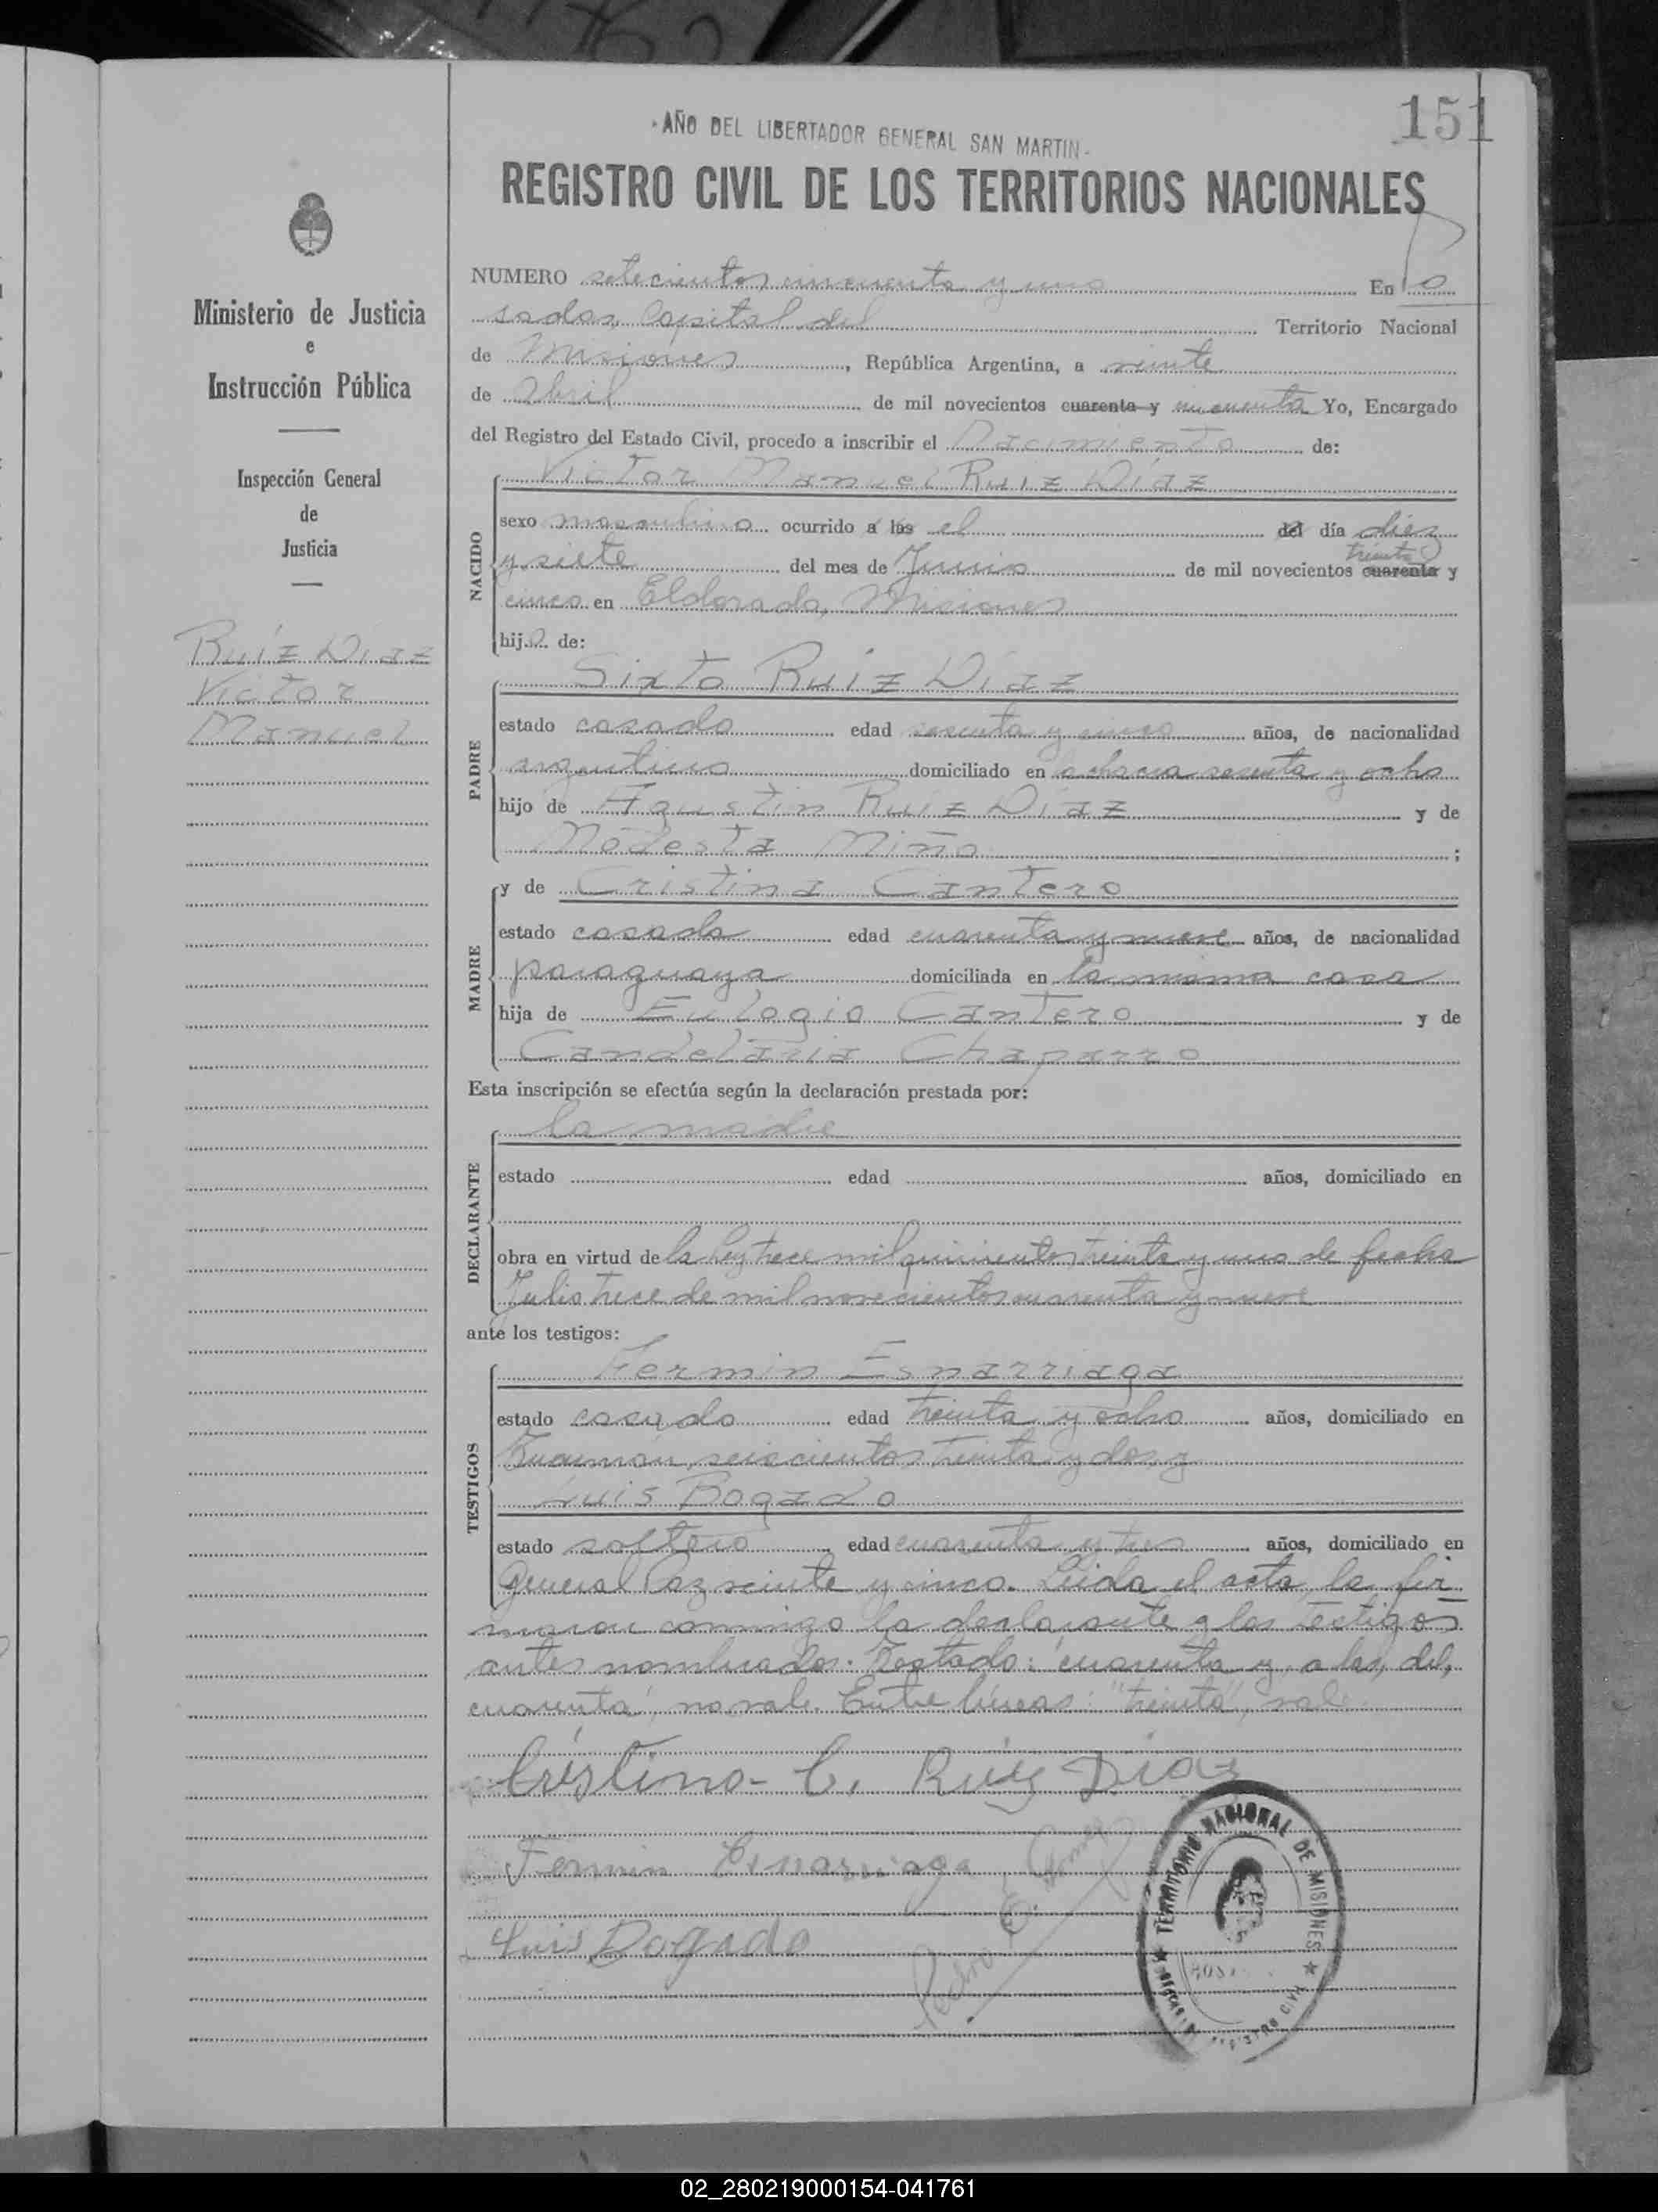 151
- AÑO DEL LIBERTADOR GENERAL SAN MARTIN -
REGISTRO CIVIL DE LOS TERRITORIOS NACIONALES
Ministerio de Justicia
e
Instrucción Pública
Inspección General
de
Justicia
Ruíz Díaz
Victor
Manuel
NUMERO setecientos cincuenta y uno En Po
sadas, Capital del Territorio Nacional
de Misiones, República Argentina, a veinte
de Abril de mil novecientos cuarenta y cincuenta Yo, Encargado
del Registro del Estado Civil, procedo a inscribir el Nacimiento de:
NACIDO
Victor Manuel Ruiz Díaz
sexo masculino ocurrido a las el del día diez
treinta
y siete del mes de Junio de mil novecientos cuarenta y
cinco en Eldorado, Misiones
hijo de:
PADRE
Sixto Ruiz Díaz
estado casado edad sesenta y cinco años, de nacionalidad
argentino domiciliado en chacra sesenta y ocho
hijo de Agustín Ruiz Díaz y de
Modesta Miño ;
MADRE
y de Cristina Cantero
estado casada edad cuarenta y nueve años, de nacionalidad
paraguaya domiciliada en la misma casa
hija de Eulogio Cantero y de
Candelaria Chaparro
Esta inscripción se efectúa según la declaración prestada por:
DECLARANTE
la madre
estado edad años, domiciliado en
obra en virtud de la Ley trece mil quinientos treinta y uno de fecha
Julio trece de mil novecientos cuarenta y nueve
ante los testigos:
TESTIGOS
Fermin Esnarriaga
estado casado edad treinta y ocho años, domiciliado en
Tucuman seiscientos treinta y dos y
Luis Bogado
estado soltero edad cuarenta y tres años, domiciliado en
General Paz veinte y cinco. Leida el acta, la fir
maron conmigo la declarante y los testigos
antes nombrados. Testado: "cuarenta y, a las, del,
cuarenta", no vale. Entre líneas: "treinta", vale.
Cristina C. Ruiz Diaz
Fermin Esnarriaga
Luis Bogado
Pedro E. Gomez
TERRITORIO NACIONAL DE MISIONES
REGISTRO CIVIL
02_280219000154-041761